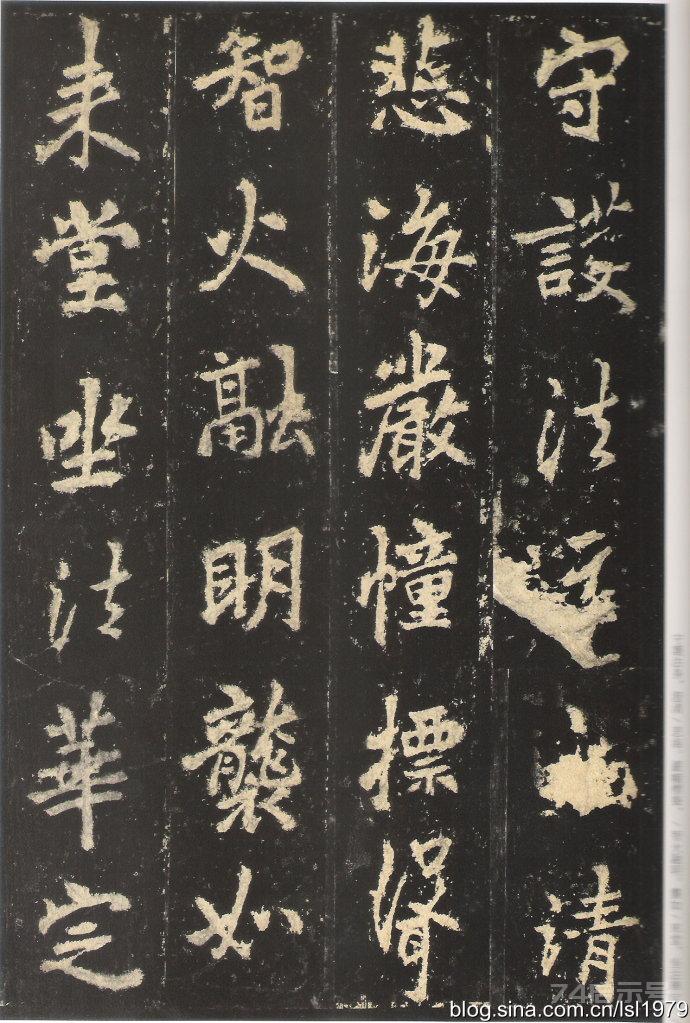 守護法請
悲海嚴幢摽
智火融明襲如
来堂坐法華定
blog.sina.com.cn/lsl1979